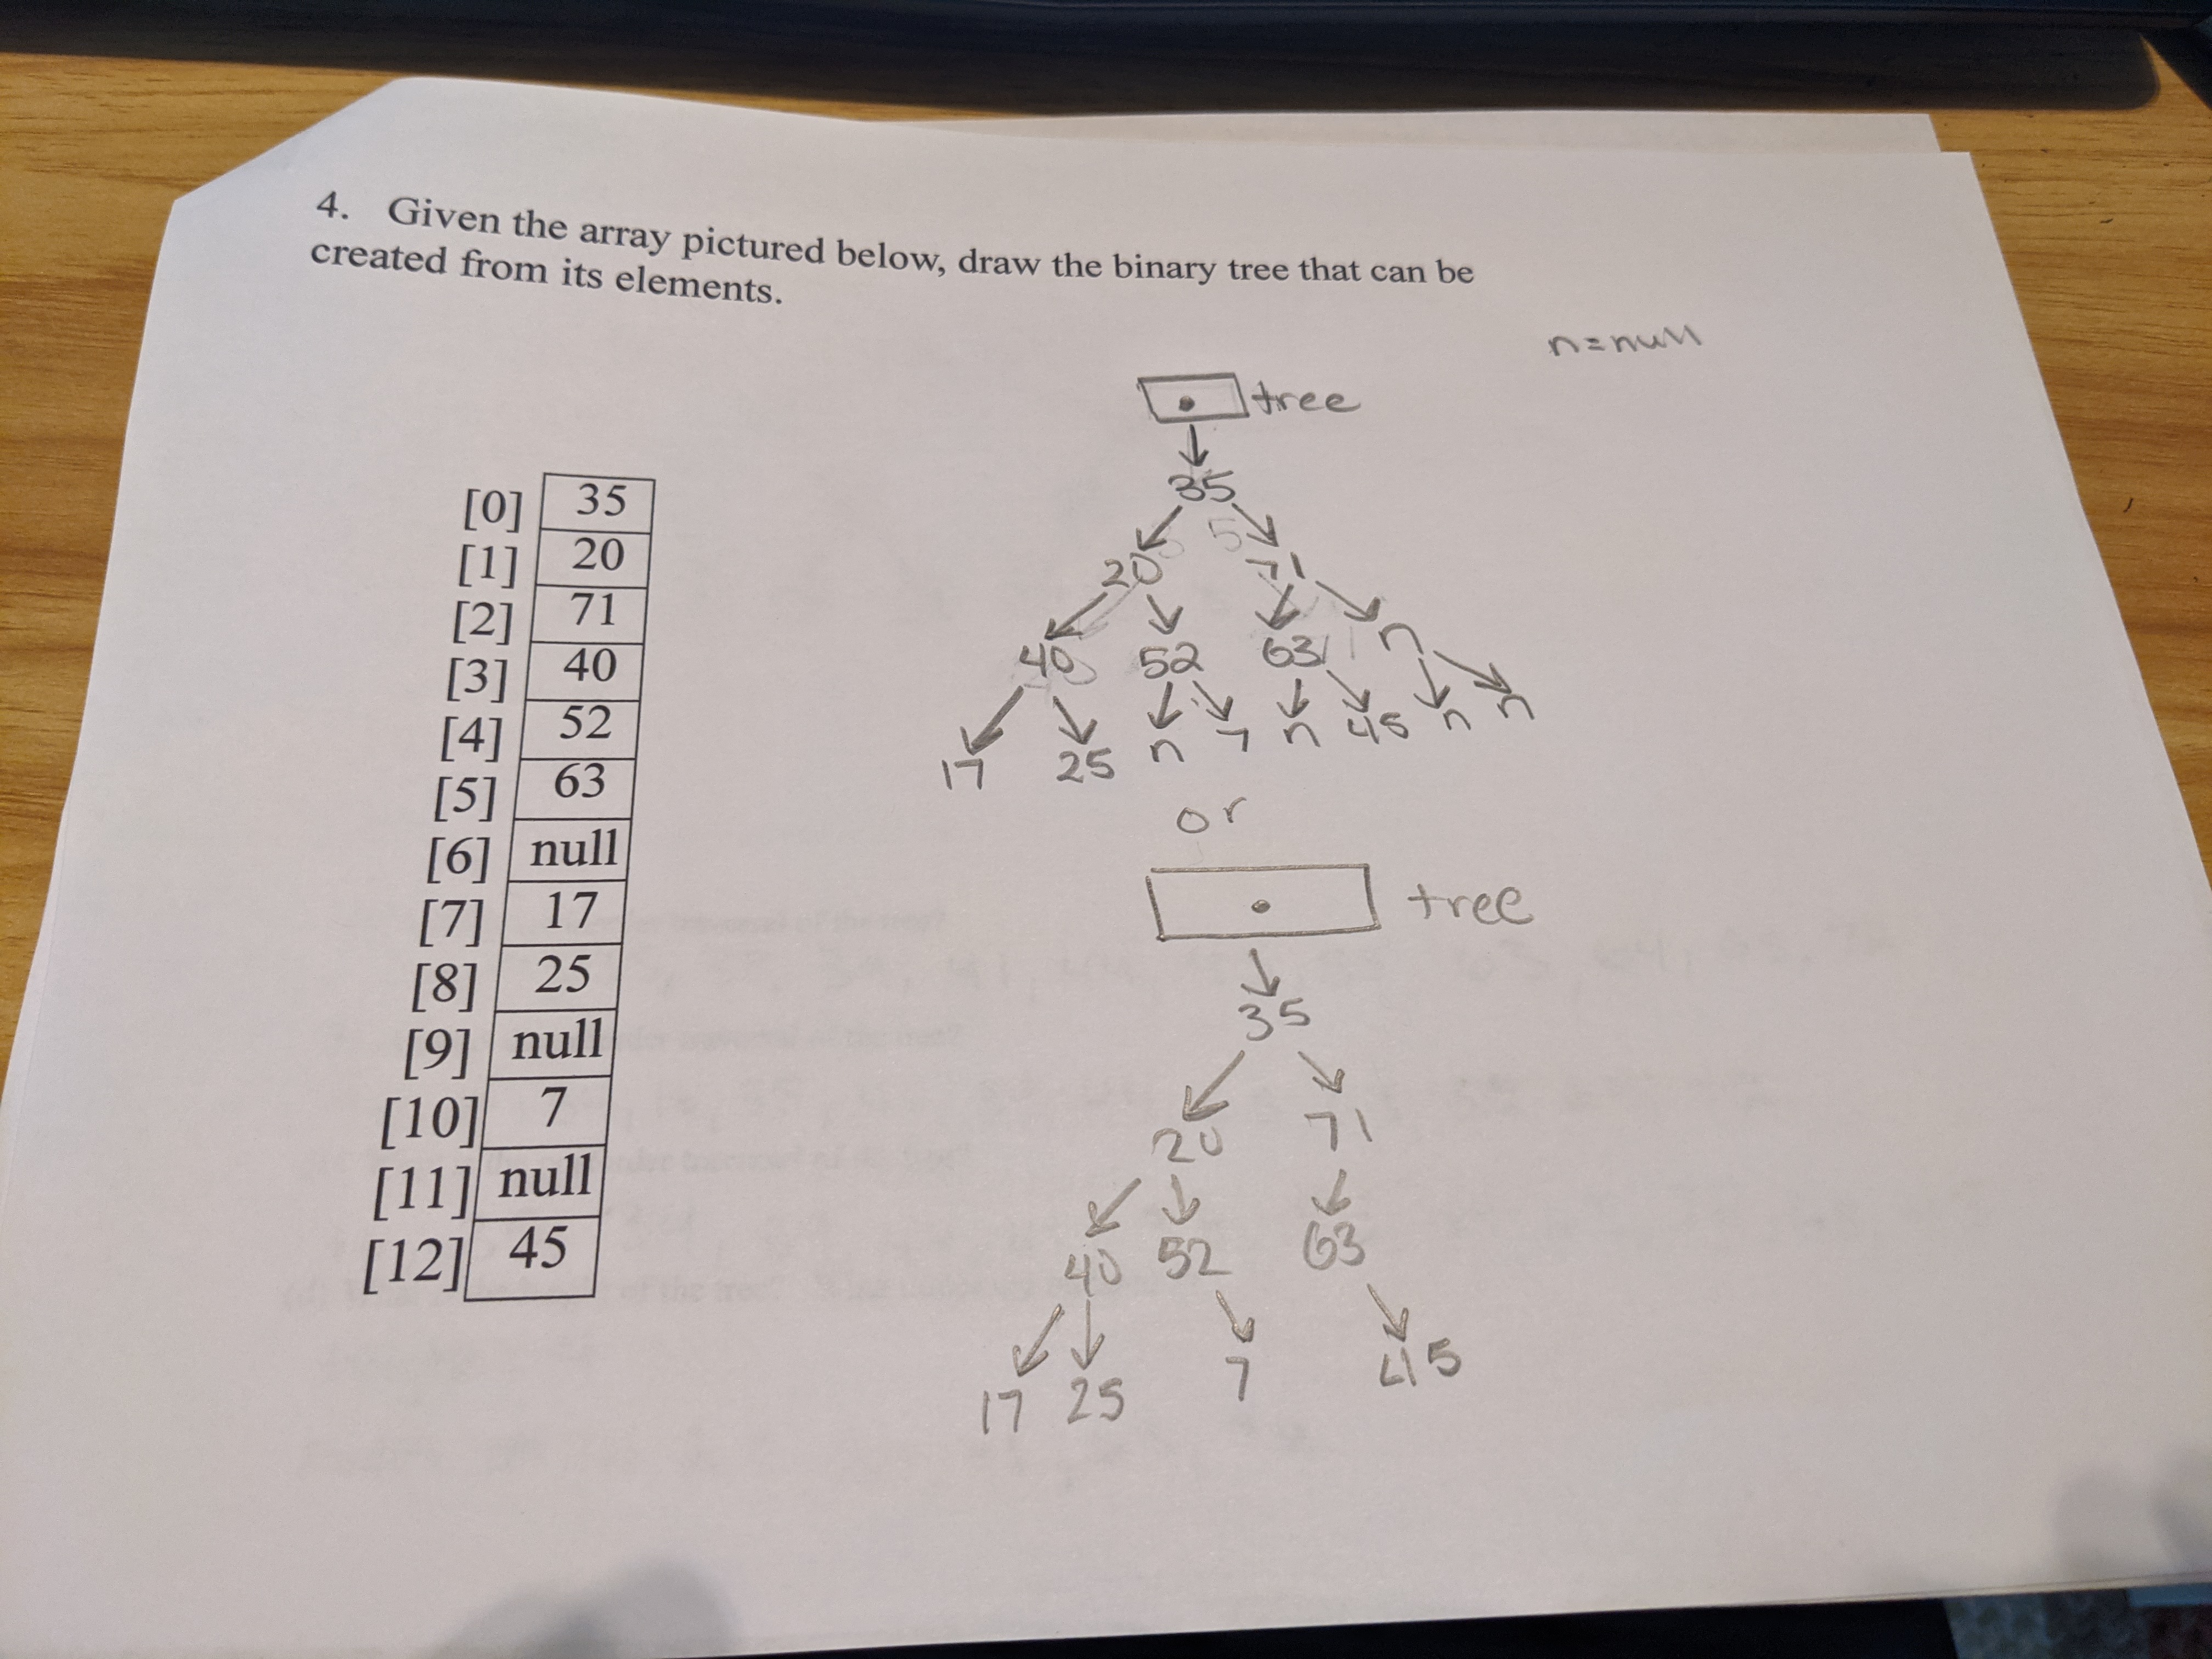 4. Given the array pictured below, draw the binary tree that can be
created from its elements.
n=null
[0] 35
[1] 20
[2] 71
[3] 40
[4] 52
[5] 63
[6] null
[7] 17
[8] 25
[9] null
[10] 7
[11] null
[12] 45
tree
35
20 71
40 52 63 n
17 25 n 7 n 45 n n
or
tree
35
20 71
40 52 63
17 25 7 45